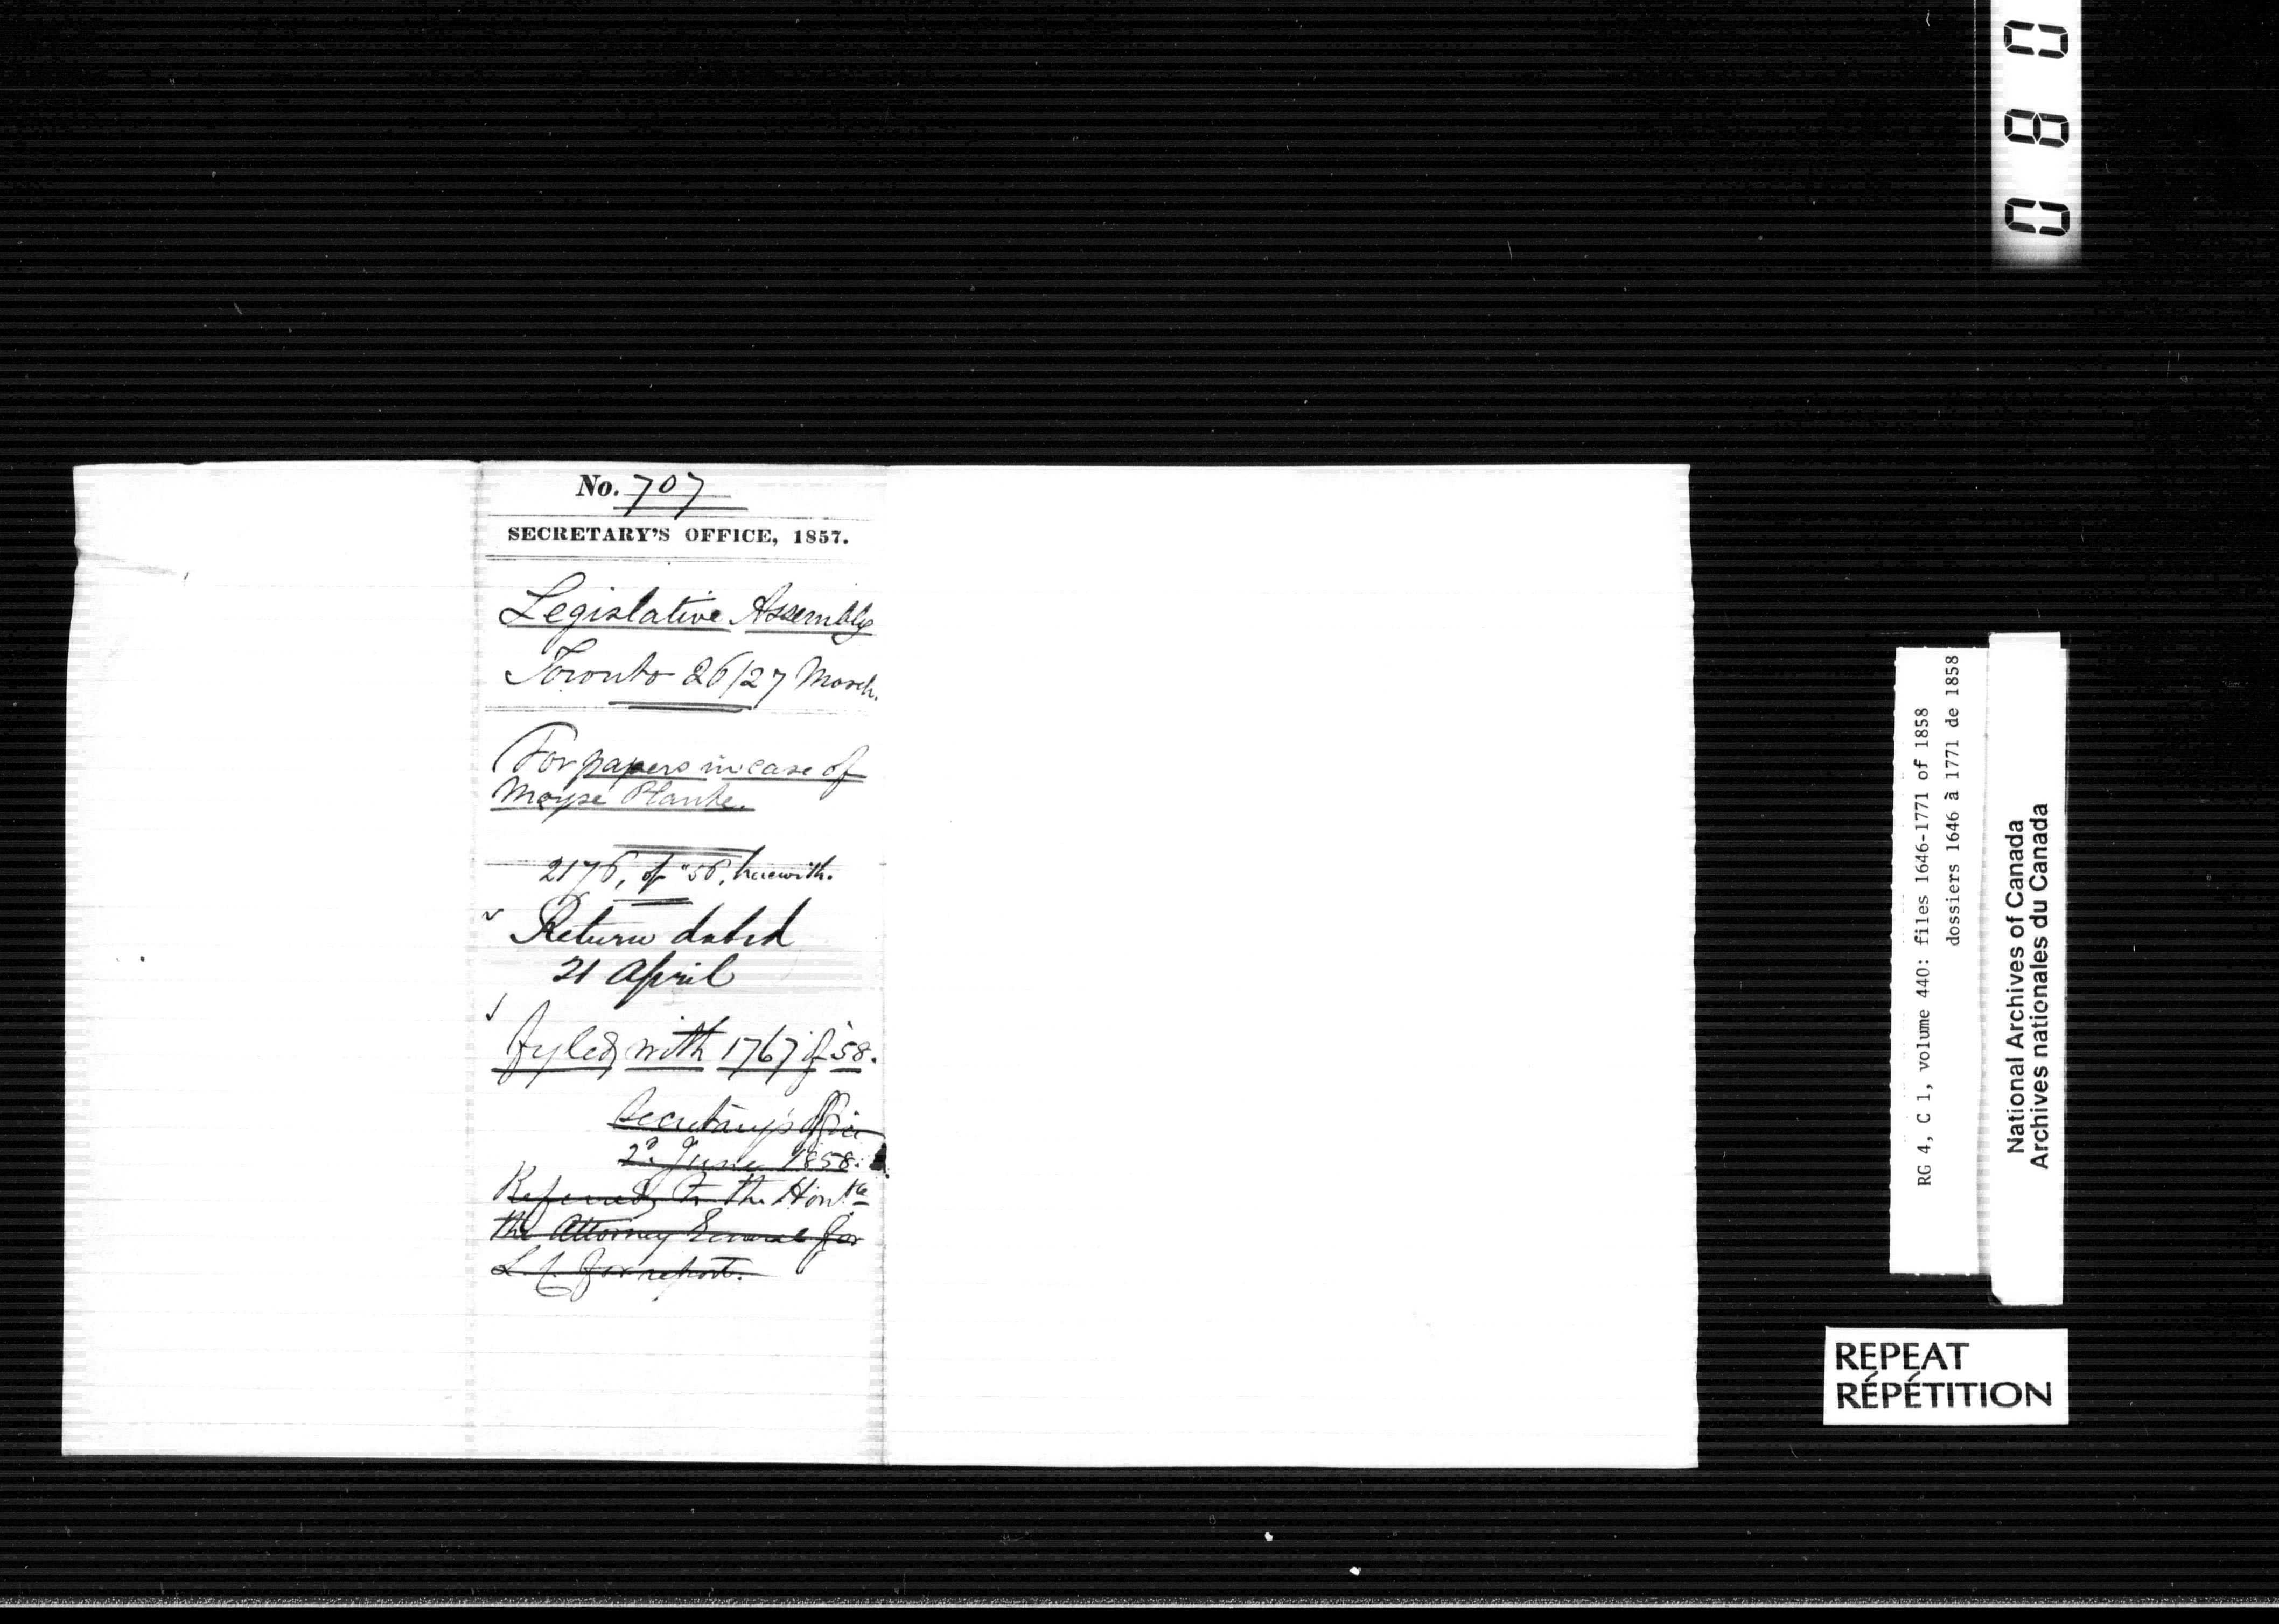 No. 707
SECRETARY'S OFFICE, 1857.
Legislative Assembly
Toronto 26/27 March.
For papers in case of
Moyse Plante.
2176, of "56, herewith.
Return dated
21 April
Fyled with 1767 of '58.
Secretary's Office
2d. June 1858.
Referred to the Honble
the Attorney General for
L. C. for report.
080
RG 4, C 1, volume 440: files 1646-1771 of 1858
dossiers 1646 à 1771 de 1858
National Archives of Canada
Archives nationales du Canada
REPEAT
RÉPÉTITION